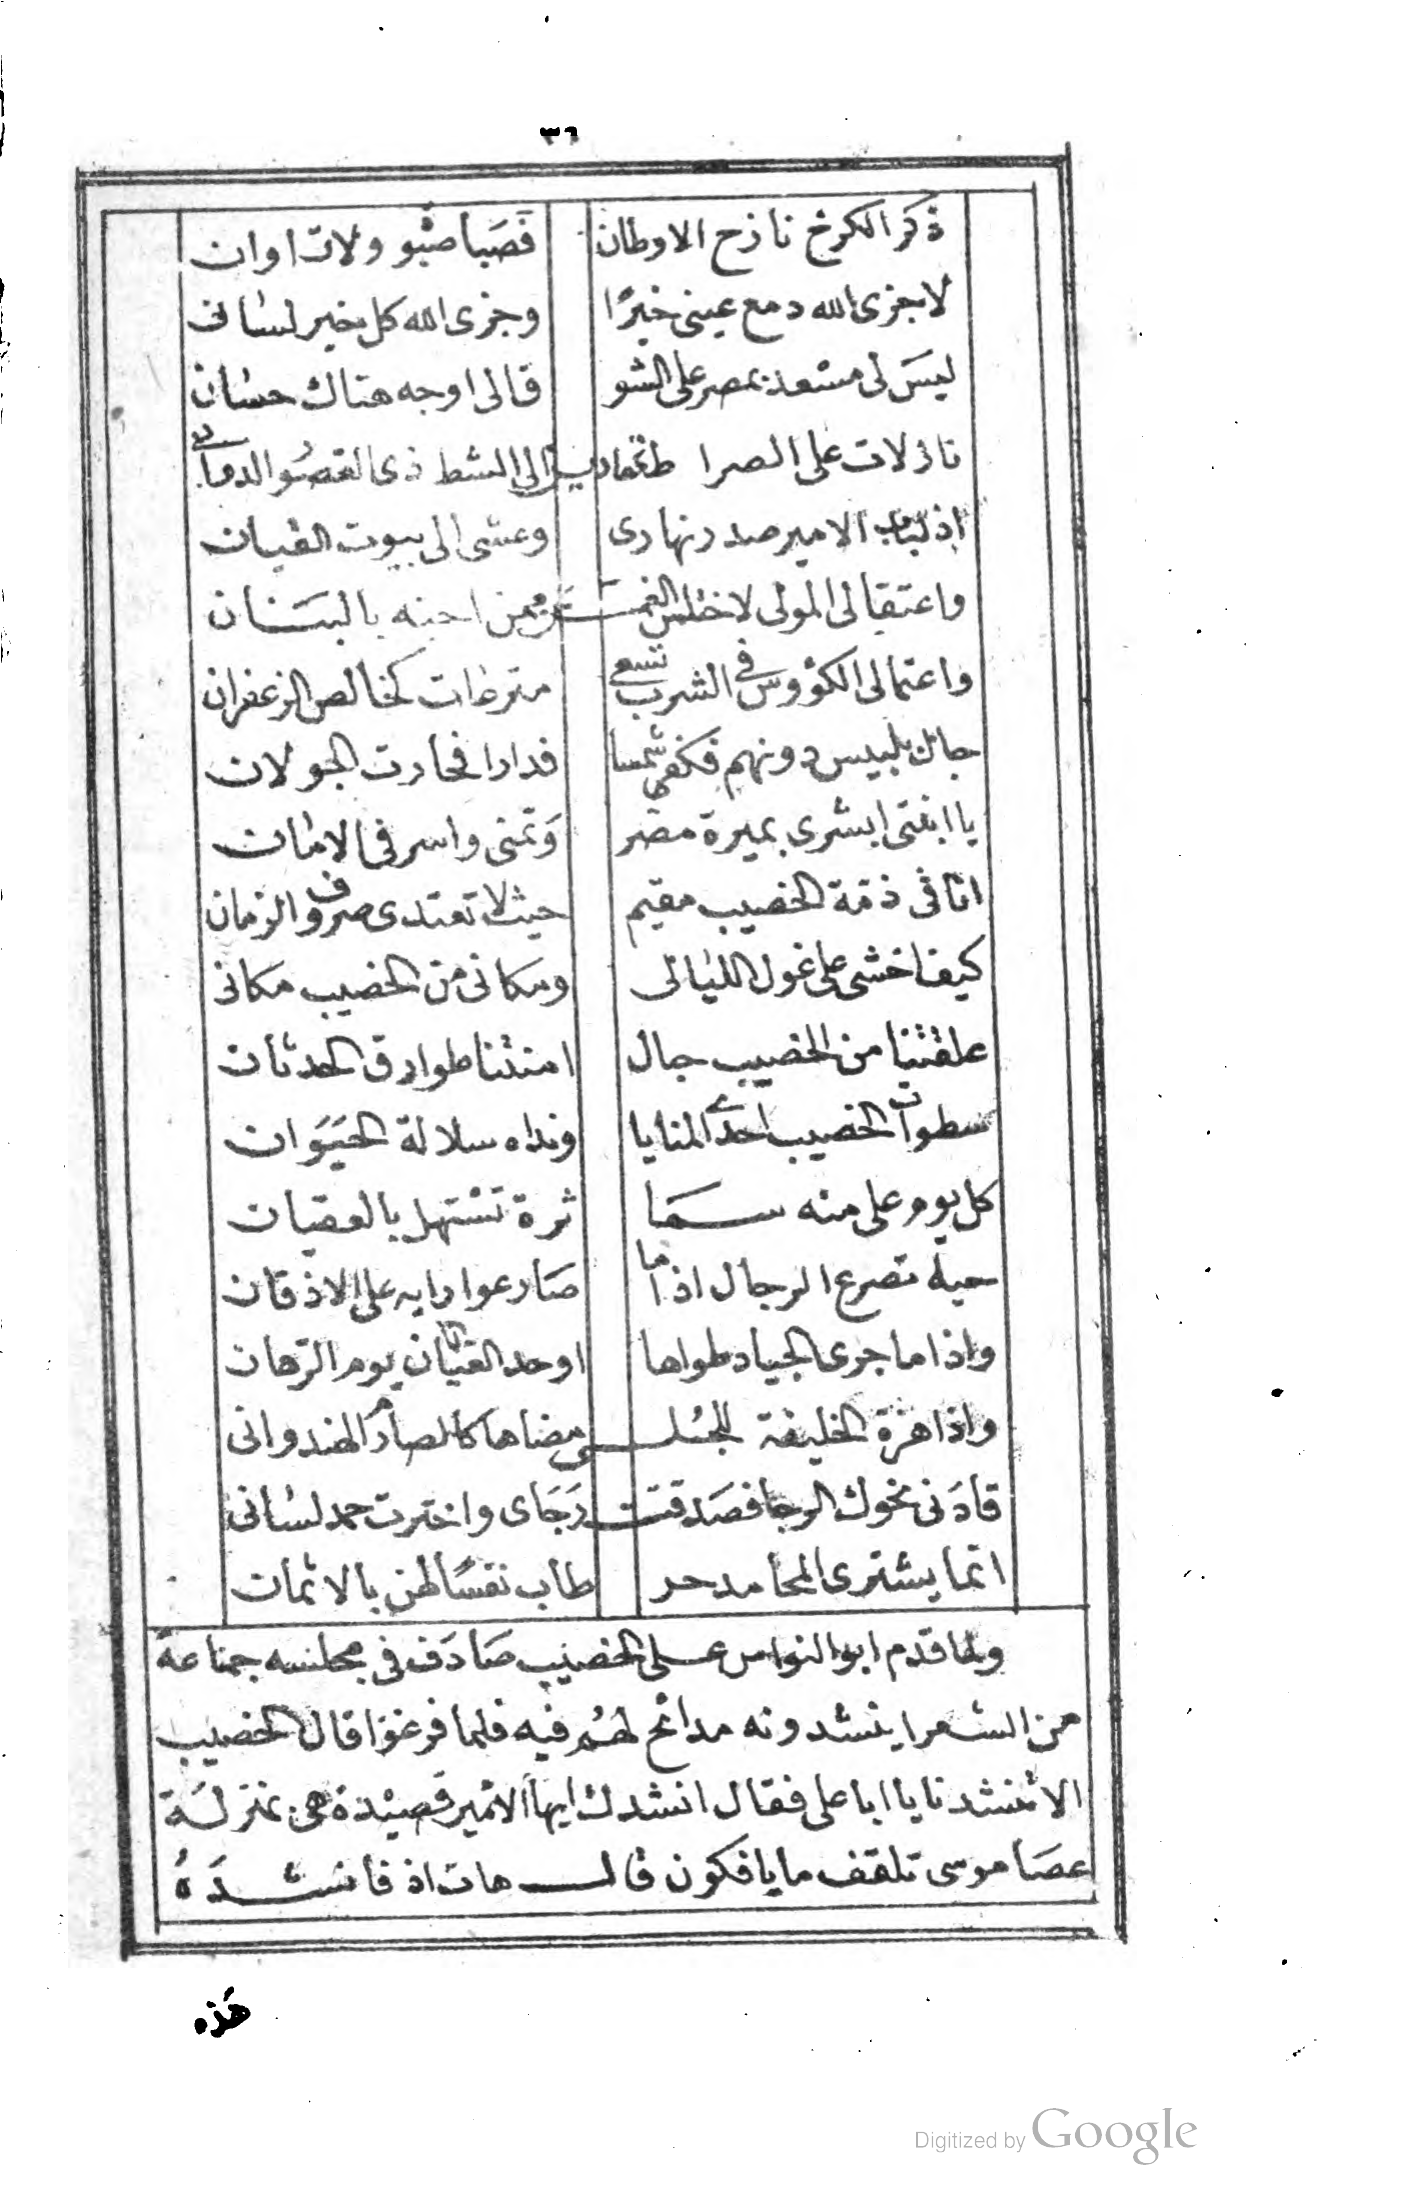 ٣٦
ذكر الكرخ نازح الاوطان فصبا صبو ولات اوان
لا جزى الله دمع عينى خيرًا وجزى الله كل خير لسانى
ليس لى مسعد بمصر على الشو ق الى اوجه هناك حسان
نازلات على الصرا الى الشط ذى القصو الدوانى
اذ لباب الامير صدر نهارى وعشى الى بيوت القيان
واعتقالى المولى لاختلس الغمـ ـز ممن احبه بالبنان
واعتمالى الكؤوس فى الشرب تسعى مترعات كخالص الزعفران
بلبيس دونهم الجولان
يا ابنتى ابشرى بميرة مصر وتمنى واسر فى الامان
انا فى ذمة الخصيب مقيم حيث لا تعتدى صروف الزمان
كيف اخشى على غول الليالى ومكانى من الخصيب مكانى
علقتنا من الخصيب حبال امنتنا طوارق الحدثان
سطوات الخصيب احدى المنايا ونداه سلالة الحيوان
كل يوم على منه سما ثرة تستهل بالعقيان
حية تصرع الرجال اذا ما صارعوا رايه على الاذقان
واذا ما جرى الجياد طواها اوحد الفتيان يوم الرهان
واذا هزة الخليفة للجلـ ـى مضاها كالصارم الهندوانى
قادنى نحوك الرجا فصدقت رجاى واخترت حمد لسانى
انما يشترى المحامد حر طاب نفسًا لهن بالاثمان
ولما قدم ابو النواس على الخصيب صادف فى مجلسه جماعة
من الشعرا ينشدونه مدائح لهم فيه فلما فرغوا قال الخصيب
الا تنشدنا يا ابا على فقال انشدك ايها الامير قصيدة هى بمنزلة
عصا موسى تلقف ما يافكون قال هات اذ فانشده
هذه
Digitized by Google